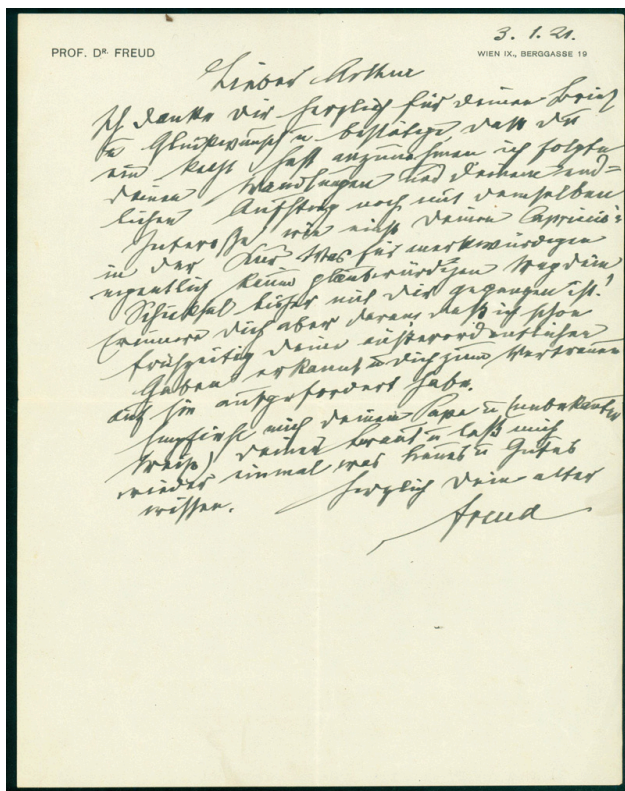 3. 1. 21.
PROF. DR. FREUD
WIEN IX., BERGGASSE 19
Lieber Arthur
Ich danke dir herzlich für deinen Brief
u Glückwunsch u bestätige daß du
ein Recht hast anzunehmen ich folgte
deinen Wandlungen und deinem end=
lichen Aufstieg noch mit demselben
Interesse wie einst deinen Capriccio's
in der Was für merkwürdigen
eigentlich keine glaubwürdigen Weg dein
Schicksal bisher mit dir gegangen ist!
Erinnere dich aber daran daß ich schon
frühzeitig deine außerordentlichen
Gaben erkannt u dich zum Vertrauen
auf sie aufgefordert habe.
Empfiehl mich deinem Papa u (unbekannter
Weise) deiner Braut u laß mich
wieder einmal was Neues u Gutes
wissen.
Herzlich dein alter
Freud